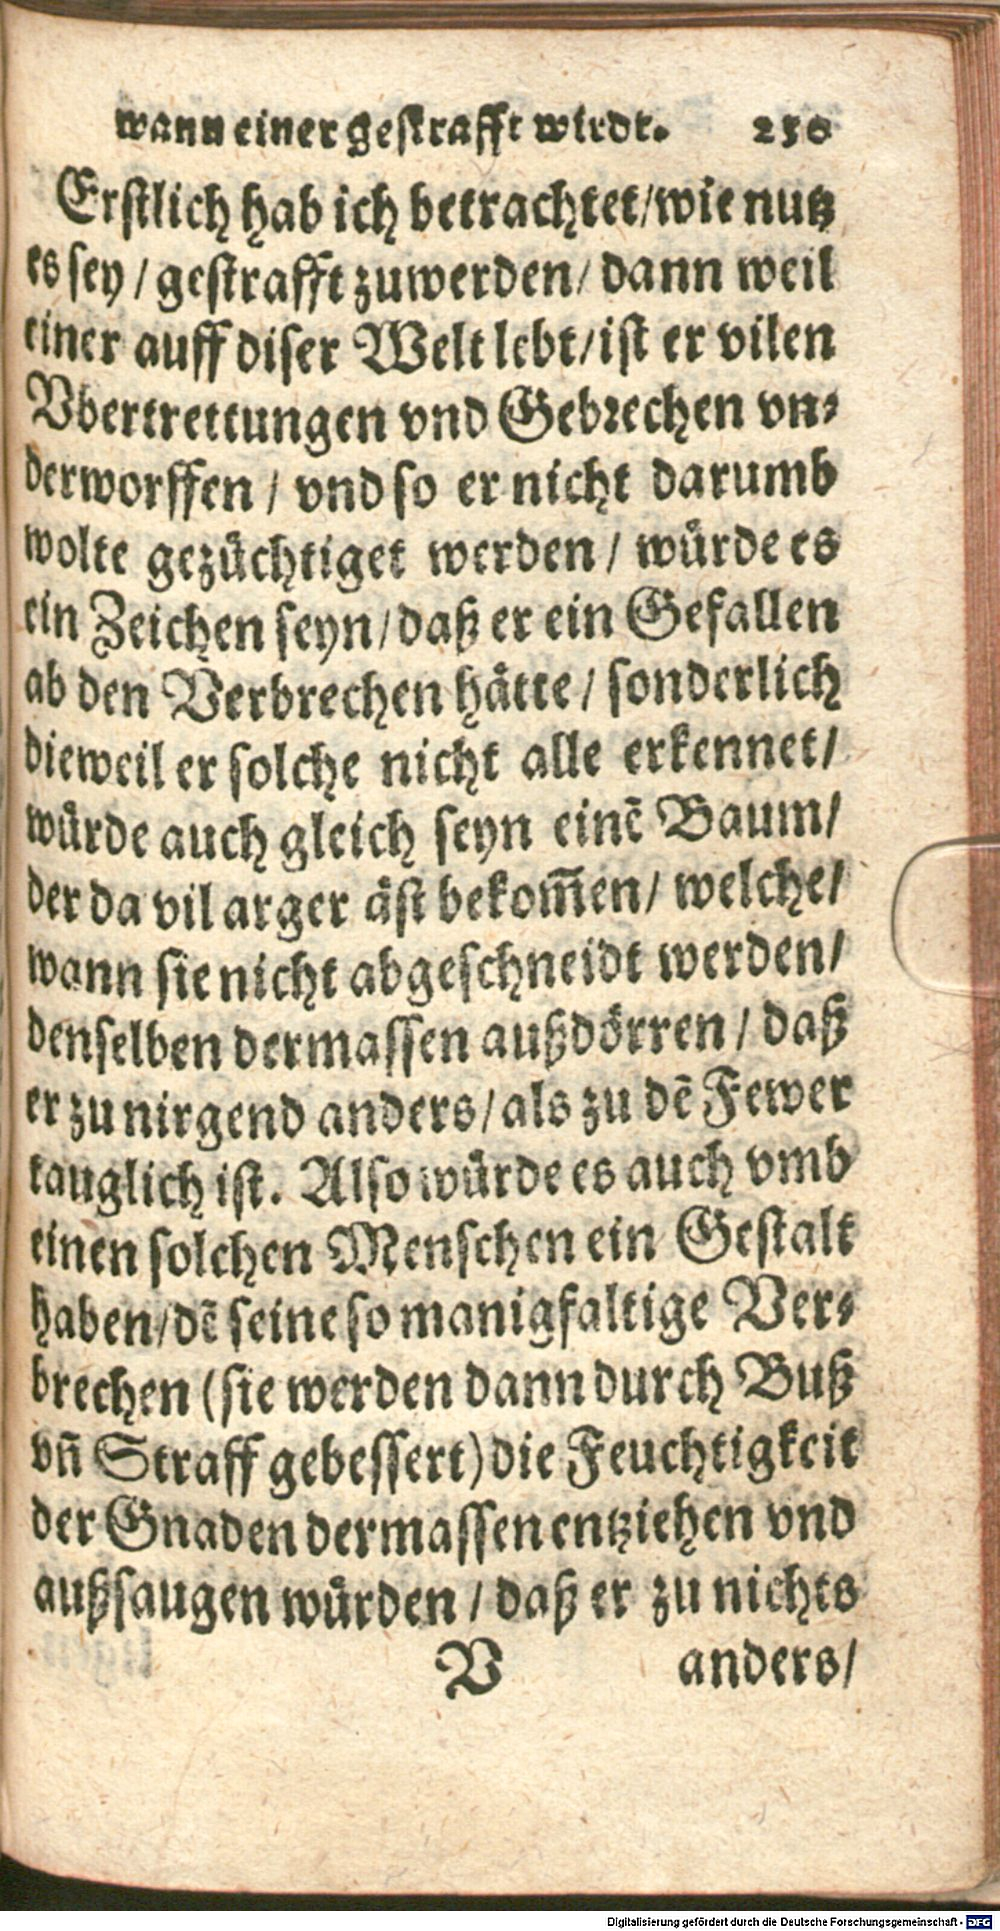 wann einer gestrafft wirdt. 250
Erstlich hab ich betrachtet/wie nutz
es sey / gestrafft zuwerden/ dann weil
einer auff diser Welt lebt/ist er vilen
Vbertrettungen vnd Gebrechen vn-
derworffen / vnd so er nicht darumb
wolte gezüchtiget werden / würde es
ein Zeichen seyn/daß er ein Gefallen
ab den Verbrechen hätte / sonderlich
dieweil er solche nicht alle erkennet/
würde auch gleich seyn einē Baum/
der da vil arger äst bekom̄en/ welche/
wann sie nicht abgeschneidt werden/
denselben dermassen außdörren / daß
er zu nirgend anders/als zu dē Fewer
tauglich ist. Also würde es auch vmb
einen solchen Menschen ein Gestalt
haben/dē seine so manigfaltige Ver-
brechen (sie werden dann durch Buß
vn̄ Straff gebessert) die Feuchtigkeit
der Gnaden dermassen entziehen vnd
außsaugen würden / daß er zu nichts
V anders/
Digitalisierung gefördert durch die Deutsche Forschungsgemeinschaft - DFG